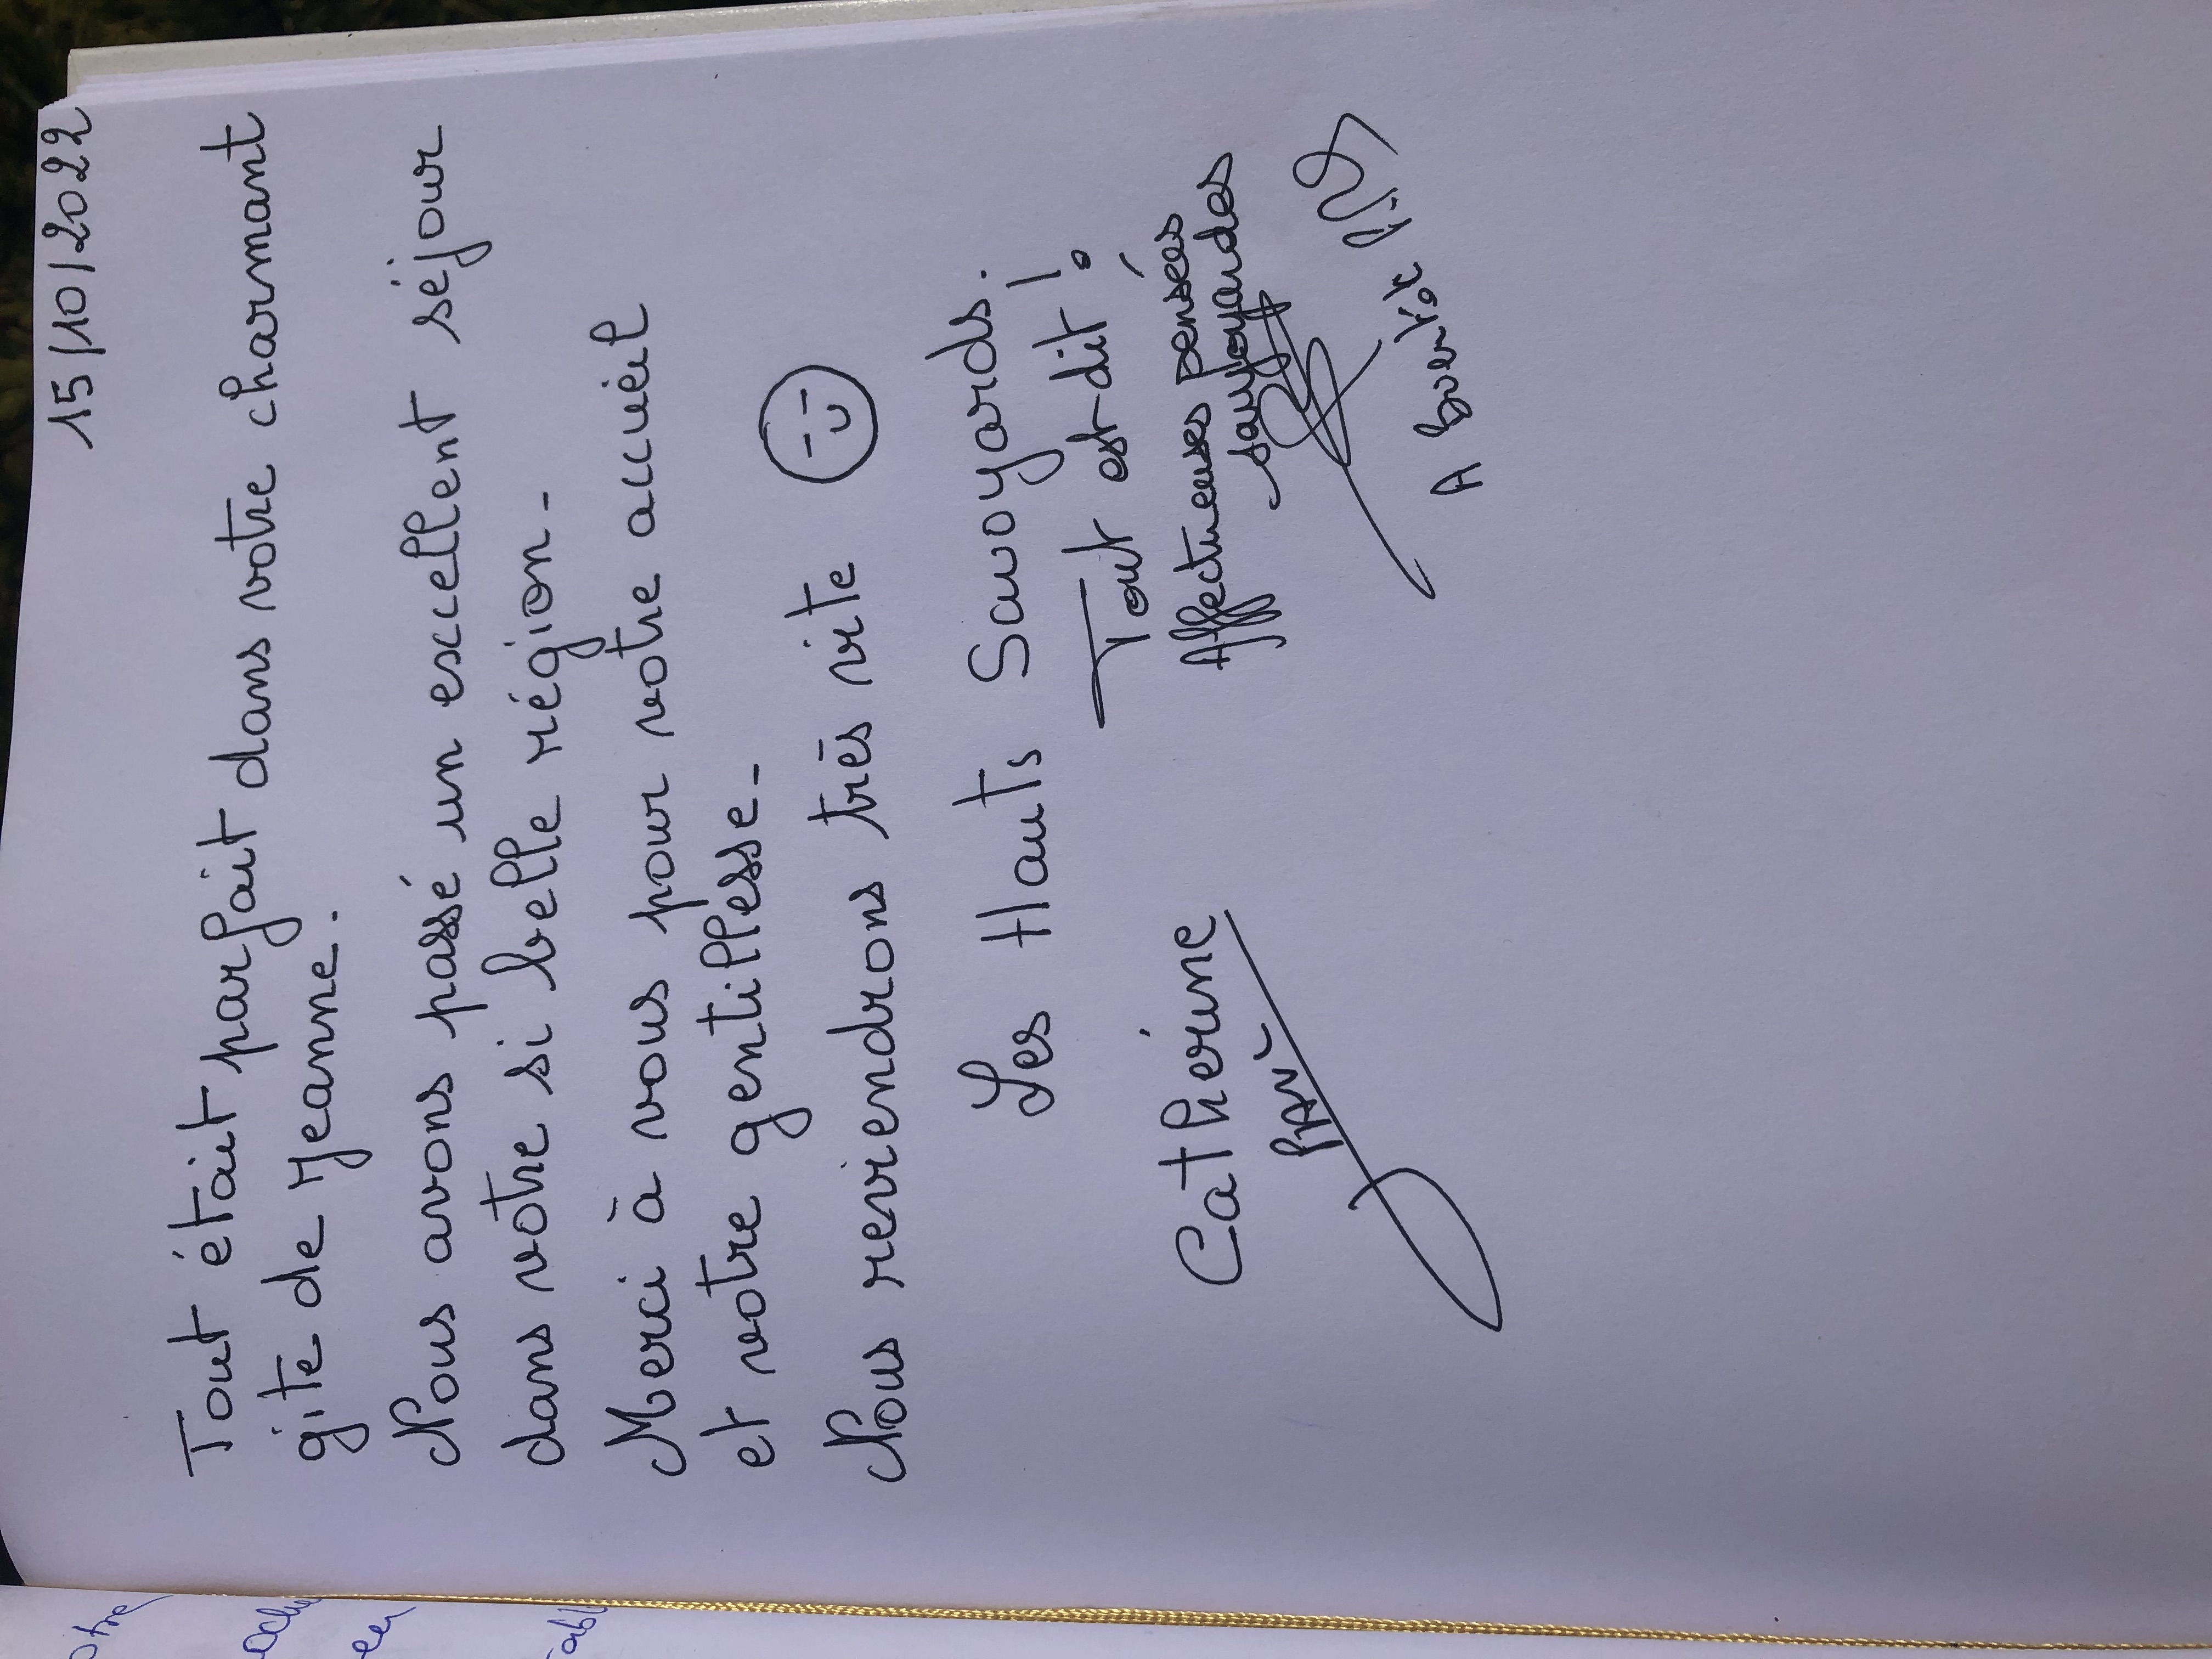 15/10/2022
Tout était parfait dans votre charmant
gite de Jeanne.
Nous avons passé un excellent séjour
dans votre si belle région -
Merci à vous pour votre accueil
et votre gentillesse -
Nous reviendrons très vite
Les Hauts Savoyards.
Tout est dit !
Affectueuses pensées
savoyardes
Catherine
A bientôt
otre